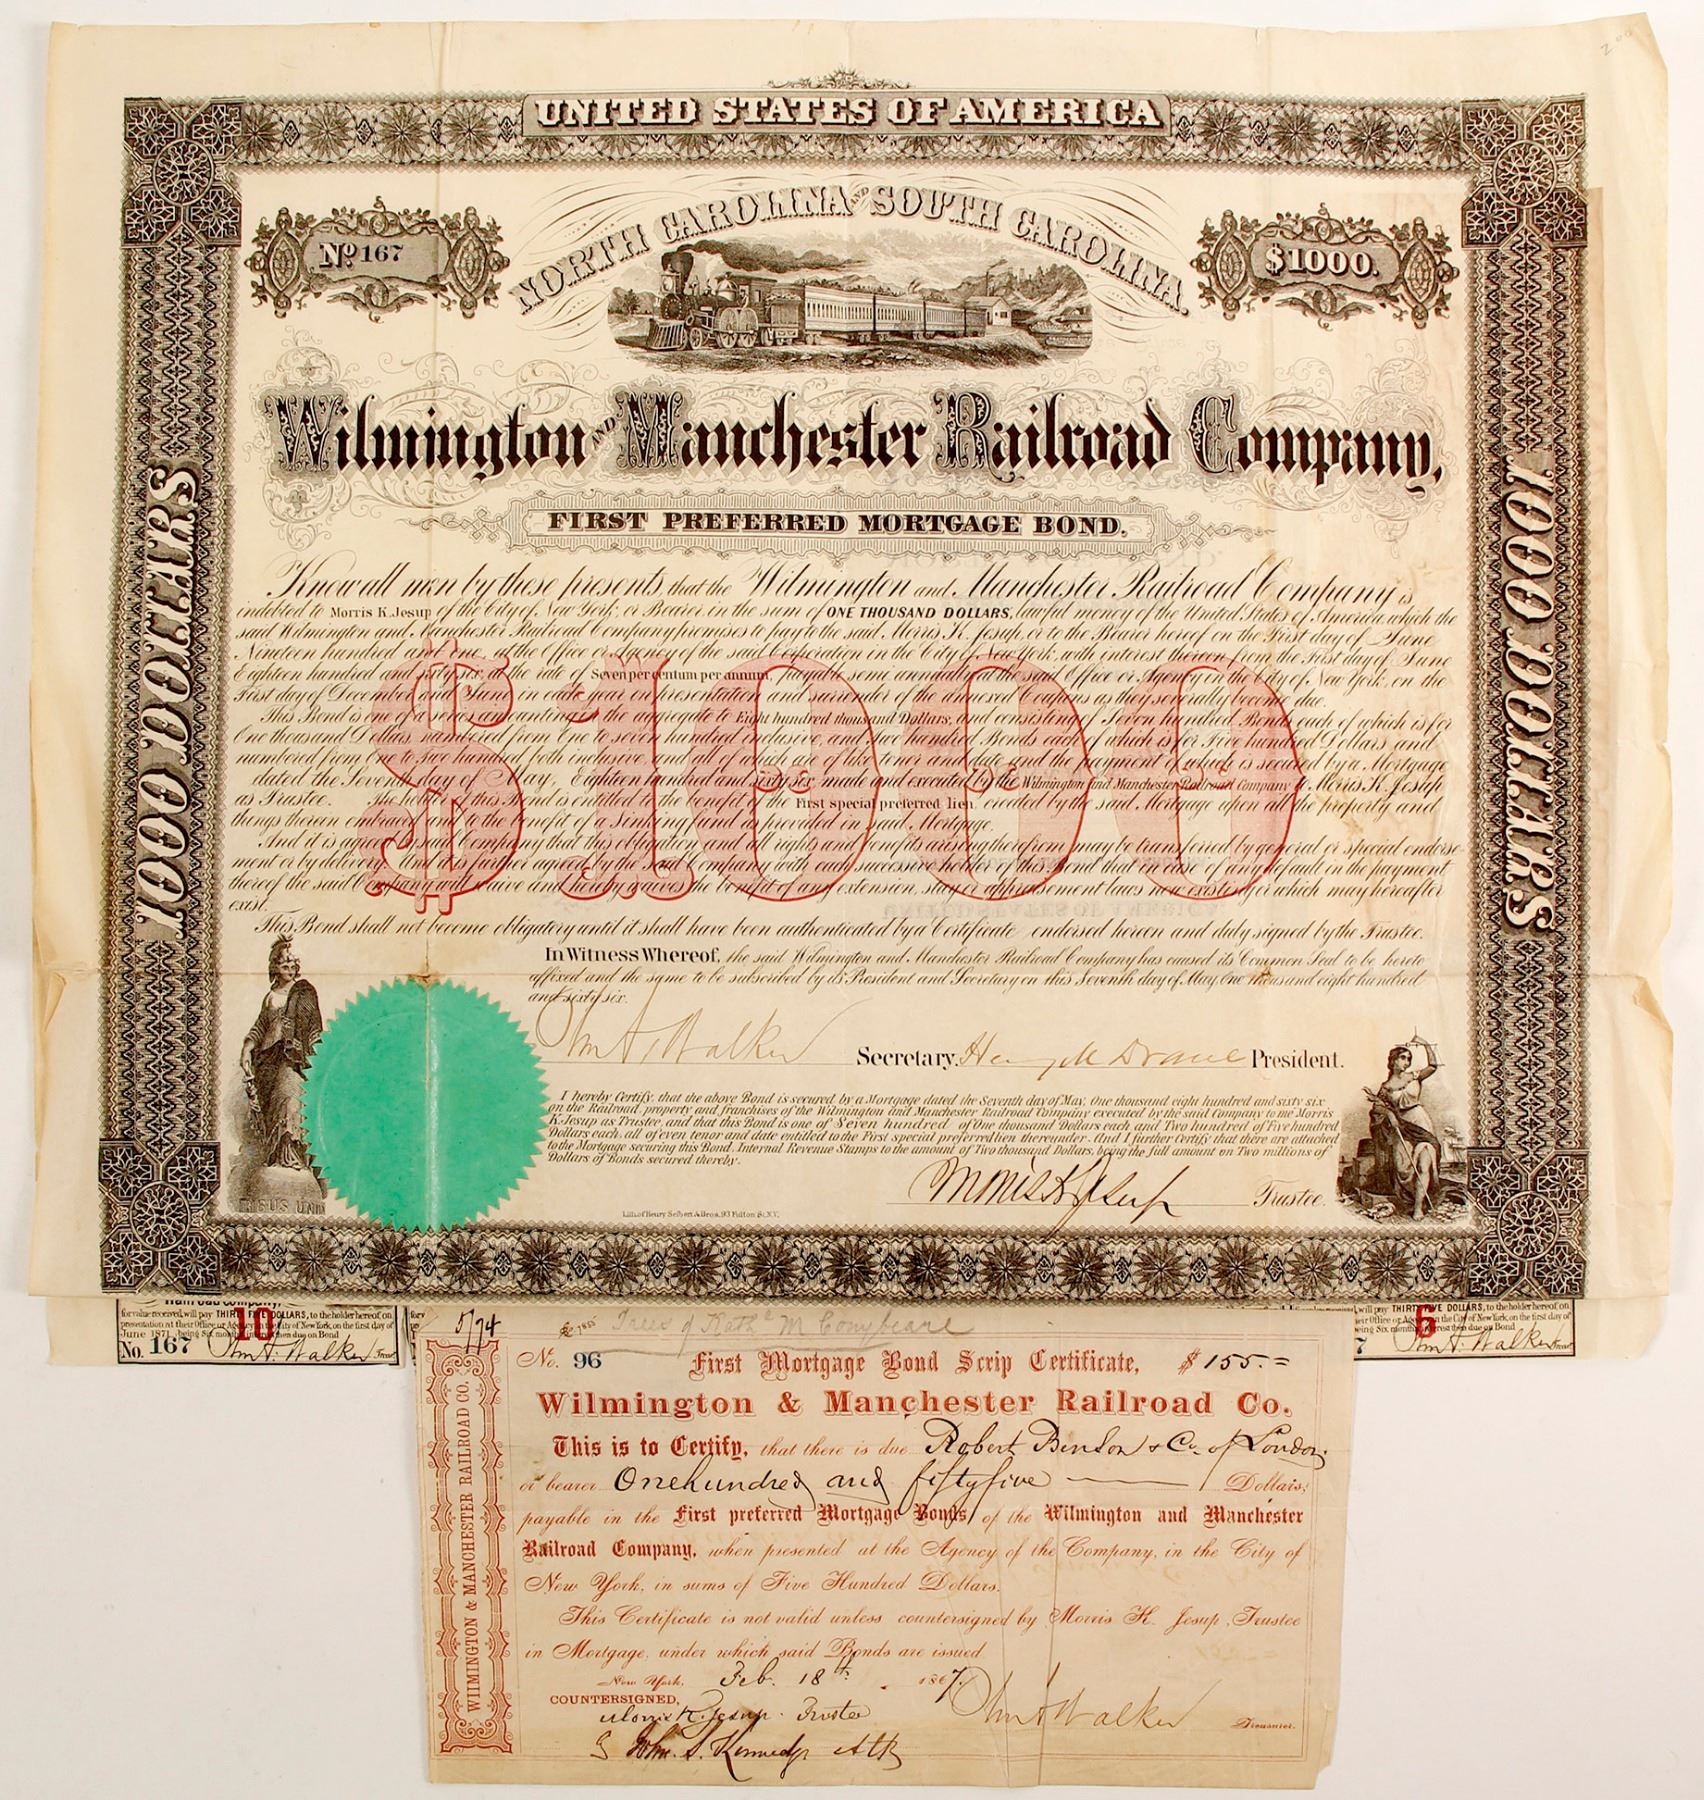 200
UNITED STATES OF AMERICA
NORTH CAROLINA AND SOUTH CAROLINA.
No 167
$1000.
Wilmington AND Manchester Railroad Company,
FIRST PREFERRED MORTGAGE BOND.
1000 DOLLARS
1000 DOLLARS
$1000
Know all men by these presents, that the Wilmington and Manchester Railroad Company is
indebted to Morris K. Jesup of the City of New York, or Bearer, in the sum of ONE THOUSAND DOLLARS, lawful money of the United States of America, which the
said Wilmington and Manchester Railroad Company promises to pay to the said Morris K. Jesup, or to the Bearer hereof on the First day of June
Nineteen hundred and one, at the Office or Agency of the said Corporation in the City of New York, with interest thereon from the First day of June
Eighteen hundred and sixty six, at the rate of Seven per centum per annum, payable semi annually at the said Office or Agency in the City of New York, on the
First day of December and June in each year on presentation and surrender of the annexed Coupons as they severally become due.
This Bond is one of a series amounting in the aggregate to Eight hundred thousand Dollars, and consisting of Seven hundred Bonds each of which is for
One thousand Dollars, numbered from One to seven hundred inclusive, and two hundred Bonds each of which is for Five hundred Dollars and
numbered from One to Two hundred both inclusive, and all of which are of like tenor and date and the payment of which is secured by a Mortgage
dated the Seventh day of May, Eighteen hundred and sixty six made and executed by the Wilmington and Manchester Railroad Company to Morris K. Jesup
as Trustee. The holder of this Bond is entitled to the benefit of the First special preferred lien created by the said Mortgage upon all the property and
things therein embraced and to the benefit of a Sinking fund as provided in said Mortgage.
And it is agreed by said Company that this obligation and all rights and benefits arising therefrom may be transferred by general or special endorse-
ment or by delivery. And it is further agreed by the said Company with each successive holder of this Bond that in case of any default in the payment
thereof the said Company will waive and hereby waives the benefit of any extension, stay or appraisement laws now existing or which may hereafter
exist.
This Bond shall not become obligatory until it shall have been authenticated by a Certificate endorsed hereon and duly signed by the Trustee.
In Witness Whereof, the said Wilmington and Manchester Railroad Company has caused its Common Seal to be hereto
affixed and the same to be subscribed by its President and Secretary on this Seventh day of May, One thousand eight hundred
and sixty six.
Wm A. Walker Secretary. Henry M Drane President.
I hereby Certify, that the above Bond is secured by a Mortgage dated the Seventh day of May, One thousand eight hundred and sixty six
on the Railroad, property and franchises of the Wilmington and Manchester Railroad Company executed by the said Company to me Morris
K. Jesup as Trustee, and that this Bond is one of Seven hundred of One thousand Dollars each and Two hundred of Five hundred
Dollars each, all of even tenor and date entitled to the First special preferred lien thereunder. And I further Certify that there are attached
to the Mortgage securing this Bond, Internal Revenue Stamps to the amount of Two thousand Dollars, being the full amount on Two millions of
Dollars of Bonds secured thereby.
Morris K Jesup Trustee.
Lith. of Henry Seibert & Bros. 93 Fulton St. N.Y.
Railroad Company,
for value received, will pay THIRTY FIVE DOLLARS, to the holder hereof, on
presentation at their Office or Agency in the City of New York, on the first day of
June 1871, being Six months interest then due on Bond
10
No. 167 Wm A. Walker Treasr
for v
will pay THIRTY FIVE DOLLARS, to the holder hereof, on
Office or Agency in the City of New York, on the first day of
being Six months interest then due on Bond
6
7 Wm A. Walker Treasr
5/74
Trees of Kathe M Conybeare
No. 96 First Mortgage Bond Scrip Certificate, $ 155.=
Wilmington & Manchester Railroad Co.
WILMINGTON & MANCHESTER RAILROAD CO.
This is to Certify, that there is due Robert Benson & Co. of London,
or bearer One hundred and fifty five Dollars,
payable in the First preferred Mortgage Bonds of the Wilmington and Manchester
Railroad Company, when presented at the Agency of the Company, in the City of
New York, in sums of Five Hundred Dollars.
This Certificate is not valid unless countersigned by Morris K. Jesup, Trustee
in Mortgage, under which said Bonds are issued
New York, Feb. 18th. 1867.
COUNTERSIGNED,
Morris K. Jesup Trustee
Wm A Walker Treasurer.
John S. Kennedy Att